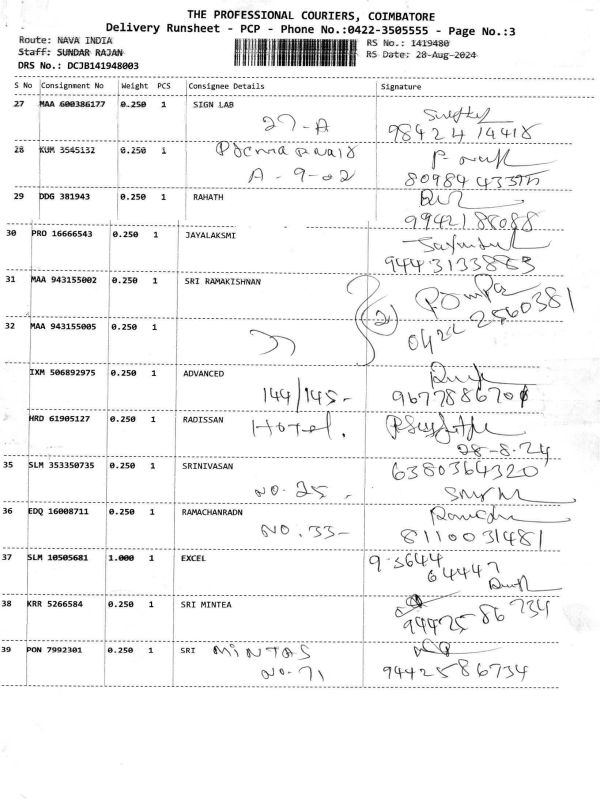 THE PROFESSIONAL COURIERS, COIMBATORE
Delivery Runsheet - PCP - Phone No.:0422-3505555 - Page No.:3
Route: NAVA INDIA
RS No.: 1419480
Staff: SUNDAR RAJAN
RS Date: 28-Aug-2024
DRS No.: DCJB141948003
S No Consignment No Weight PCS Consignee Details Signature
27 MAA 600386177 0.250 1 SIGN LAB
27-A
98424 14418
28 KUM 3545132 0.250 1
A-9-02
29 DDG 381943 0.250 1 RAHATH
9942188088
30 PRO 16666543 0.250 1 JAYALAKSMI
9443133883
31 MAA 943155002 0.250 1 SRI RAMAKISHNAN
(2)
0422 2560381
32 MAA 943155005 0.250 1
"
IXM 506892975 0.250 1 ADVANCED
144/145-
HRD 61905127 0.250 1 RADISSAN
Hotel.
28-8-24
35 SLM 353350735 0.250 1 SRINIVASAN
6380364320
NO.25.
36 EDQ 16008711 0.250 1 RAMACHANRADN
NO.33-
8110031481
37 SLM 10505681 1.000 1 EXCEL
9-3644
64447
38 KRR 5266584 0.250 1 SRI MINTEA
94425 86 734
39 PON 7992301 0.250 1 SRI MINTAS
NO-71
9442586734